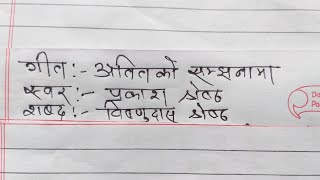 गीत:- अतितको सम्झनामा
स्वर:- प्रकाश श्रेष्ठ
शब्द:- विष्णुदास श्रेष्ठ